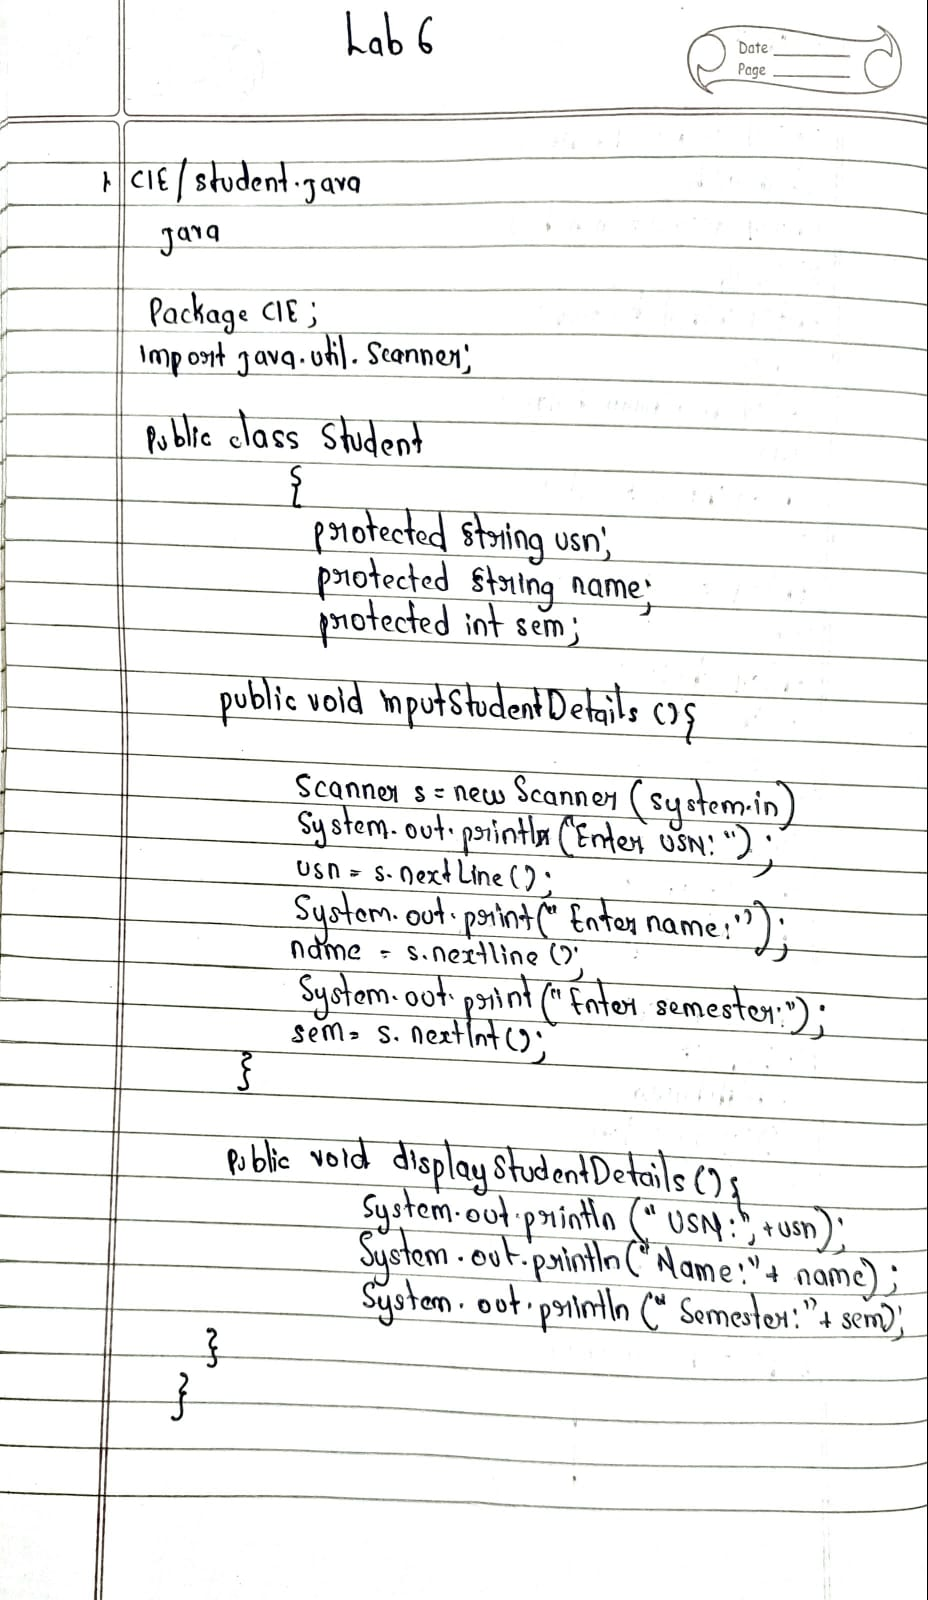 Lab 6
Date
Page
1. CIE/student.java
java
Package CIE;
Import java.util.Scanner;
Public class Student
{
protected string usn;
protected string name;
protected int sem;
public void inputStudentDetails (){
Scanner s = new Scanner (system.in)
System.out.println ("Enter USN: ");
usn = s.nextLine ();
System.out.print (" Enter name: ");
name = s.nextline ();
System.out.print ("Enter semester:");
sem = s.nextInt ();
}
Public void displayStudentDetails (){
System.out.println (" USN:", +usn);
System.out.println (" Name:"+ name);
System.out.println (" Semester:"+ sem);
}
}